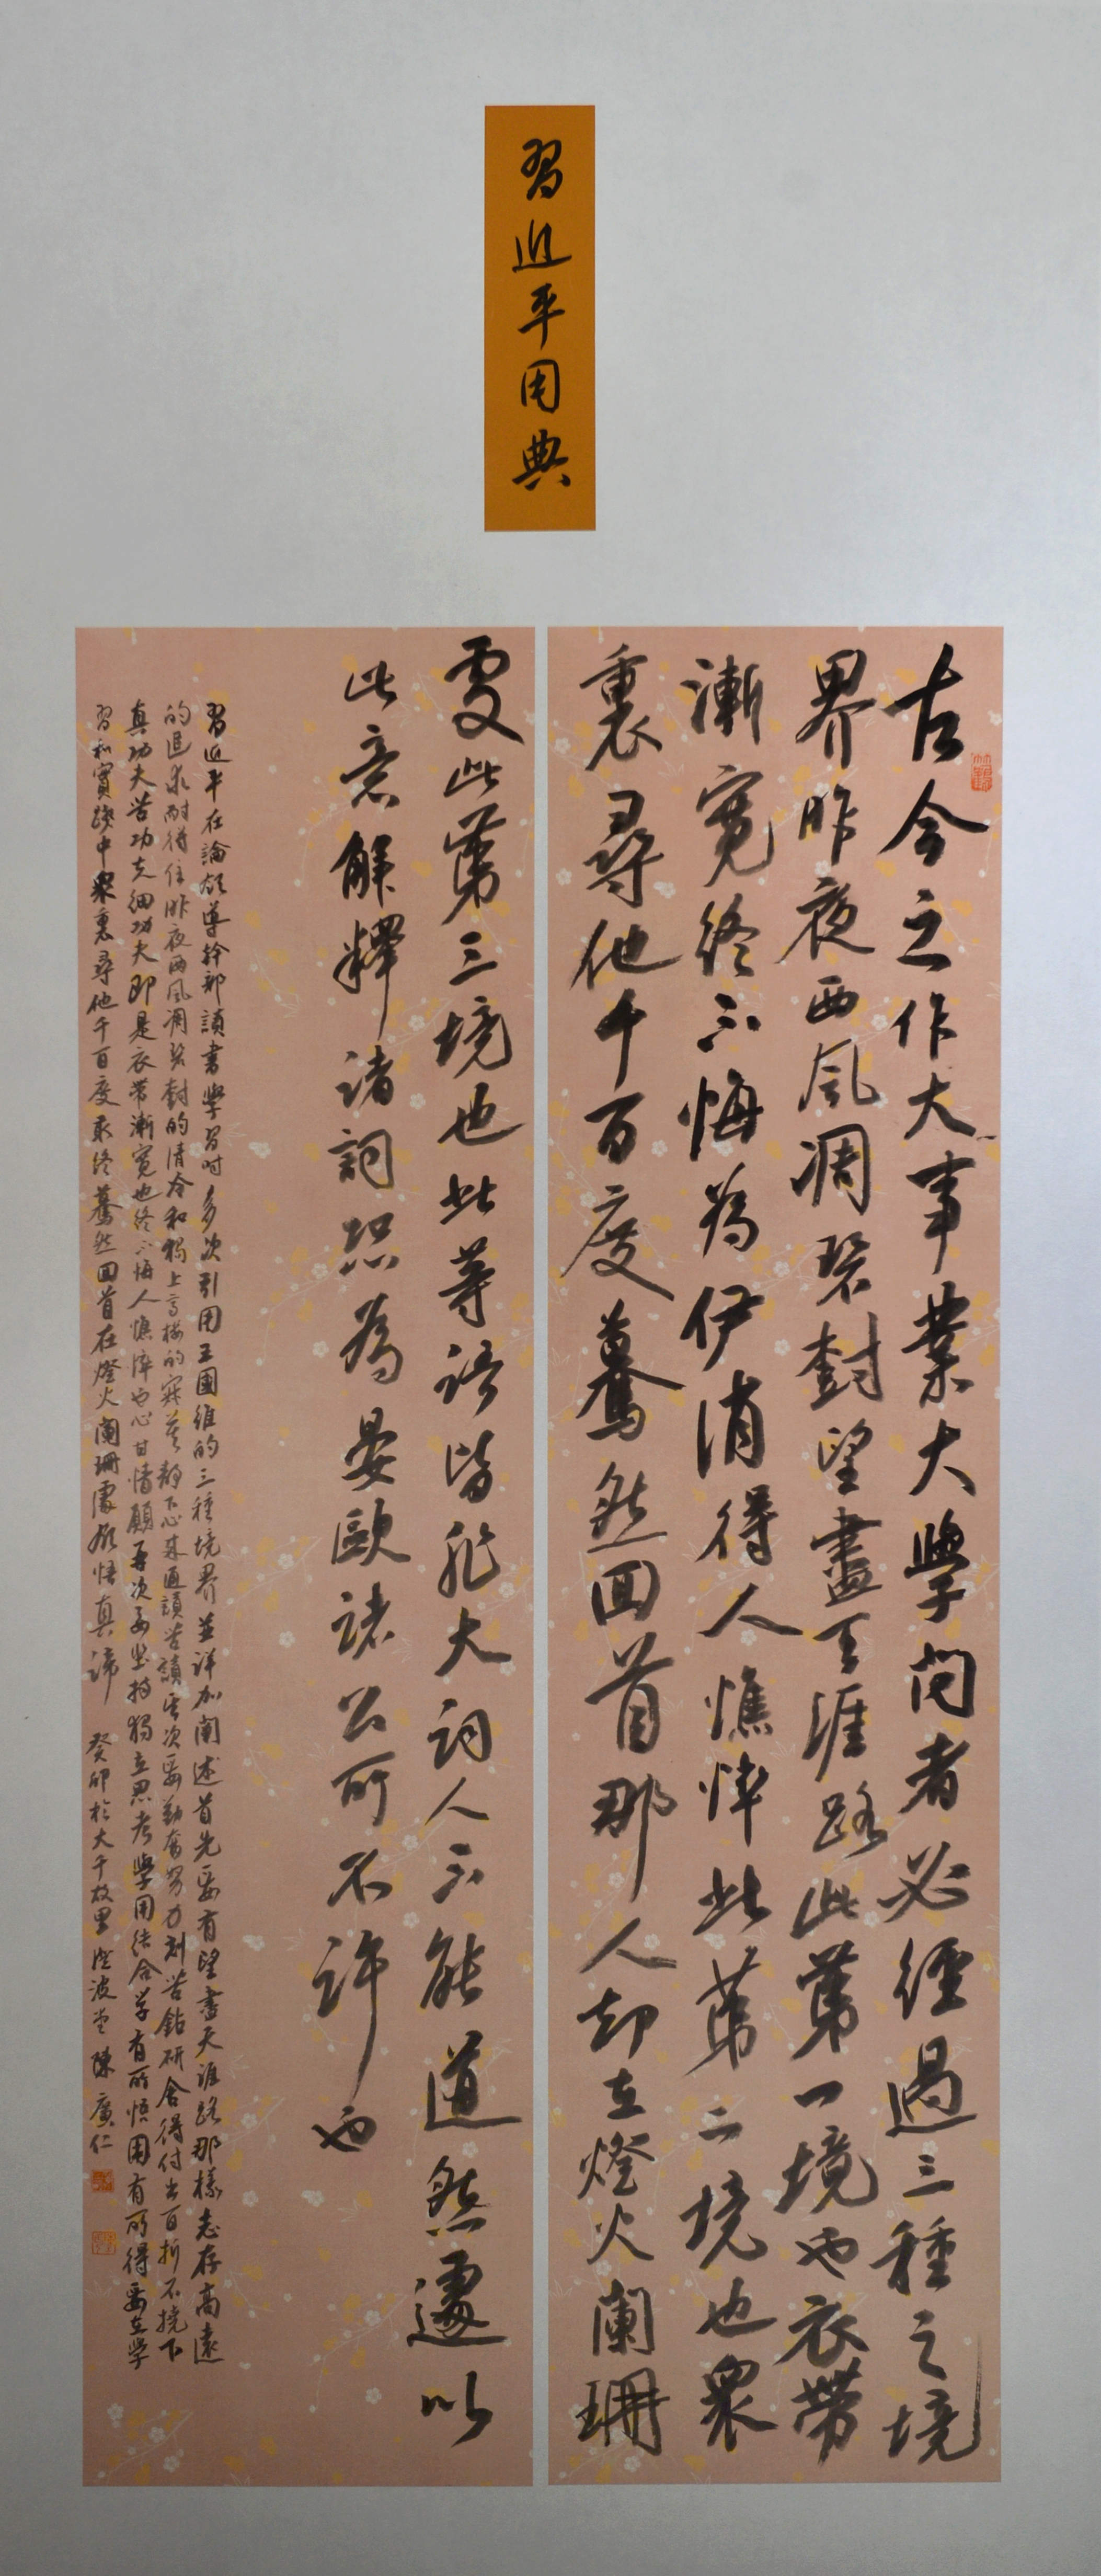 習近平用典
古今之作大事業大學問者必經過三種之境
界昨夜西風凋碧樹望盡天涯路此第一境也衣帶
漸寬終不悔為伊消得人憔悴此第二境也眾
裏尋他千百度驀然回首那人却在燈火闌珊
處此第三境也此等語皆非大詞人不能道然遽以
此意解釋諸詞恐為晏歐諸公所不許也
習近平在論領導幹部讀書學習時多次引用王國維的三種境界並詳加闡述首先要有望盡天涯路那樣志存高遠
的追求耐得住昨夜西風凋碧樹的清冷和獨上高樓的寂寞靜下心來通讀苦讀其次要勤奮努力刻苦鑽研舍得付出百折不撓下
真功夫苦功夫細功夫即是衣帶漸寬也終不悔人憔悴也心甘情願再次要堅持獨立思考學用結合学有所悟用有所得要在學
習和實踐中眾裏尋他千百度最終驀然回首在燈火闌珊處領悟真諦 癸卯於大千故里 波堂 陳廣仁